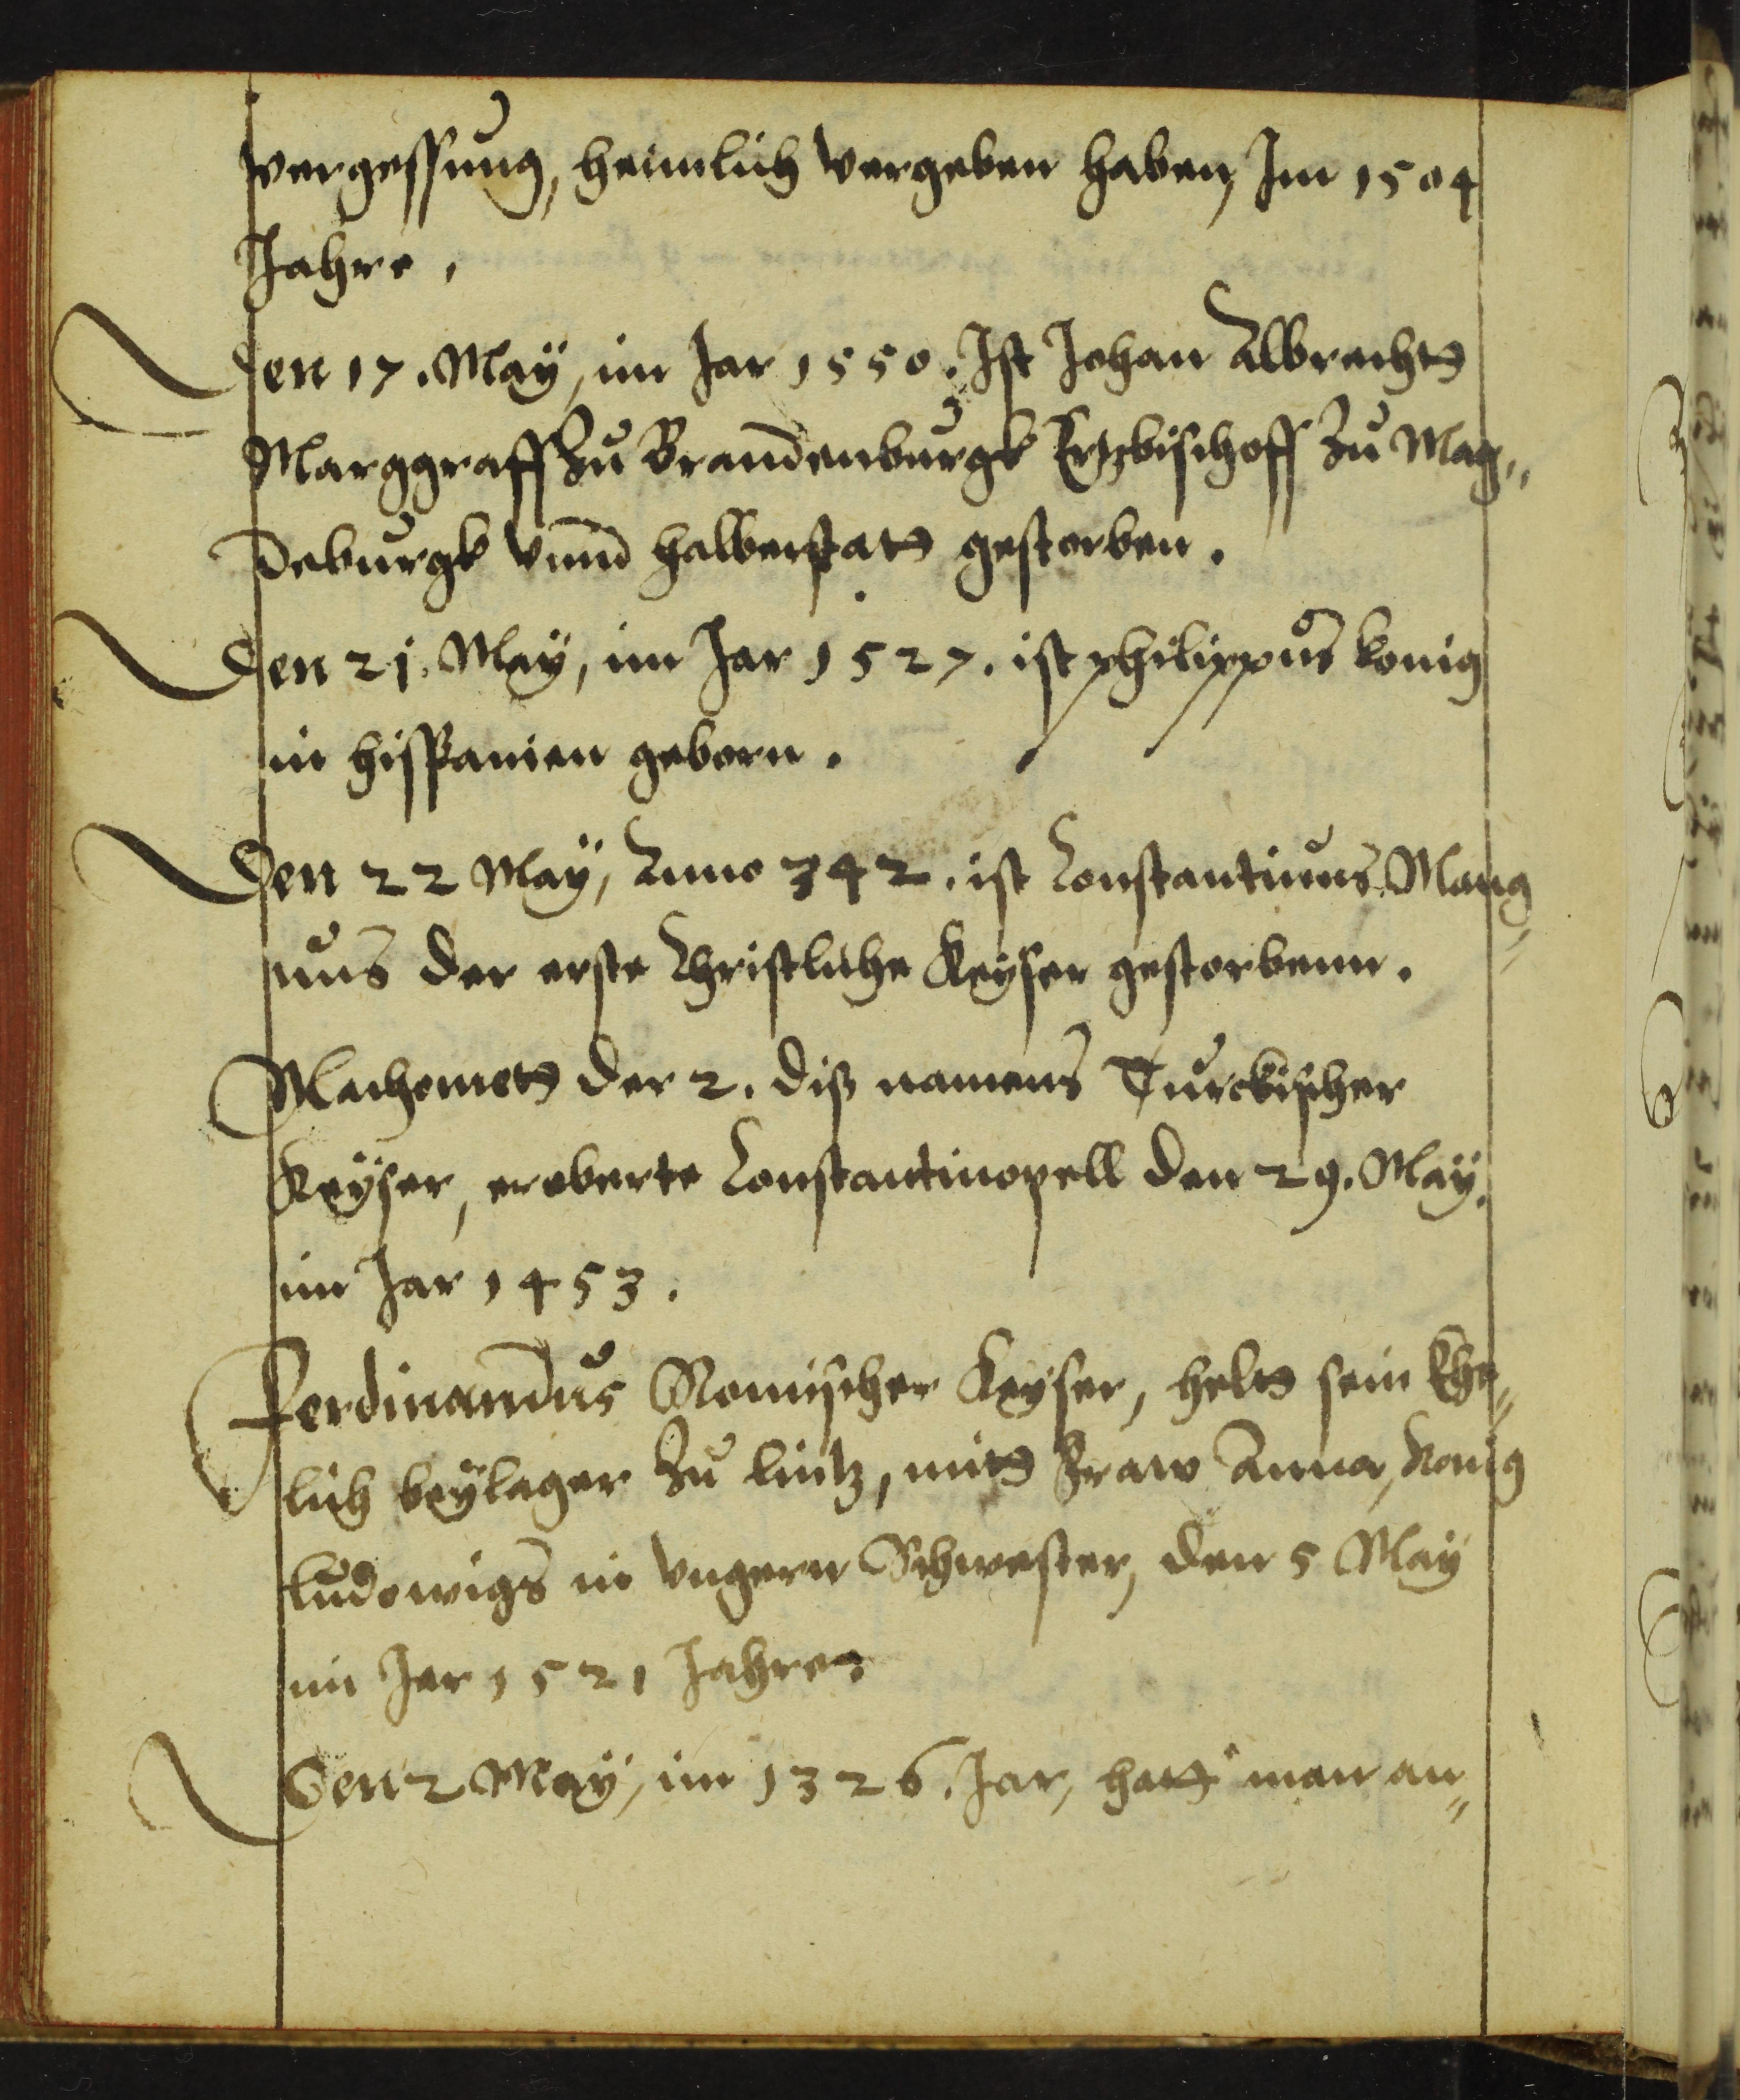 vergessung, heimlich vergeben haben, Im 1504
Jahre.
Den 17. Maÿ, im Jar 1550. Ist Johan Albrecht
Marggraff Zu Brandenburgk Ertzbischoff Zu Mag„
deburgk vnnd halberstatt gestorben.
Den 21. Maÿ, im Jar 1527. ist philippus konig
in hisspanien geborn.
Den 22 Maÿ, Anno 342. ist Constantinus Mang„
nus der erste Christliche Keÿser gestorbenn.
Machomett der 2. diß namens Turckischer
Keÿser, eroberte Constantinopell den 29. Maÿ.
im Jar 1453.
Ferdinandus Romischer Keÿser, helt sein Ehe„
lich beÿlager Zu lintz, mitt Fraw Anna, Konig
ludowigs in vngern Schwester, den 5 Maÿ
im Jar 1521 Jahre.
Den 2 Maÿ, im 1326. Jar, hatt man an„